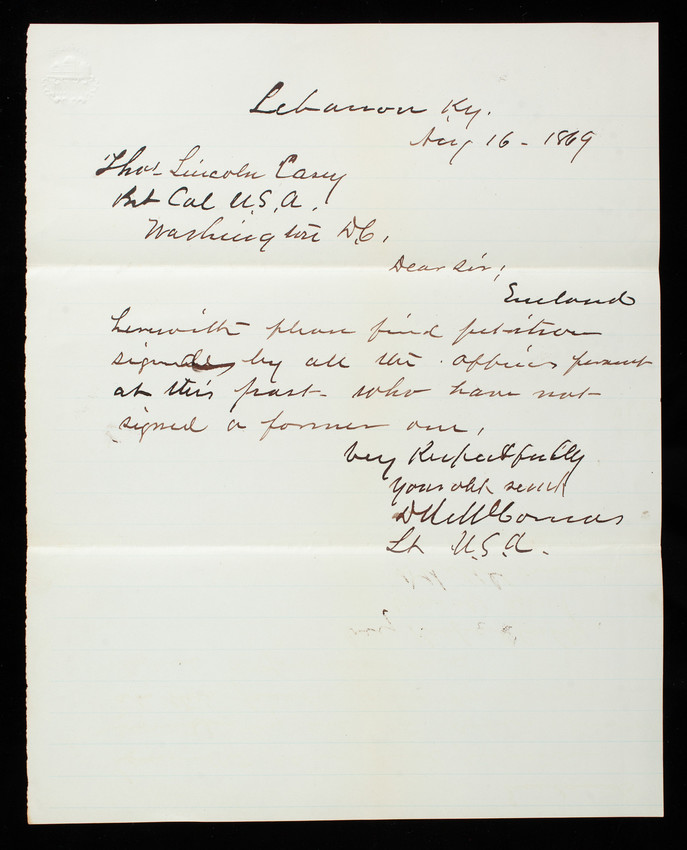 Lebanon Ky.
Aug 16 - 1869
Thos Lincoln Casey
Bvt Col U.S.A.
Washington D.C.
Dear Sir;
Enclosed
herewith please find petition
signed by all the officers present
at this post - who have not
signed a former one,
Very Respectfully
Your obt servt
McComas
Lt U.S.A.